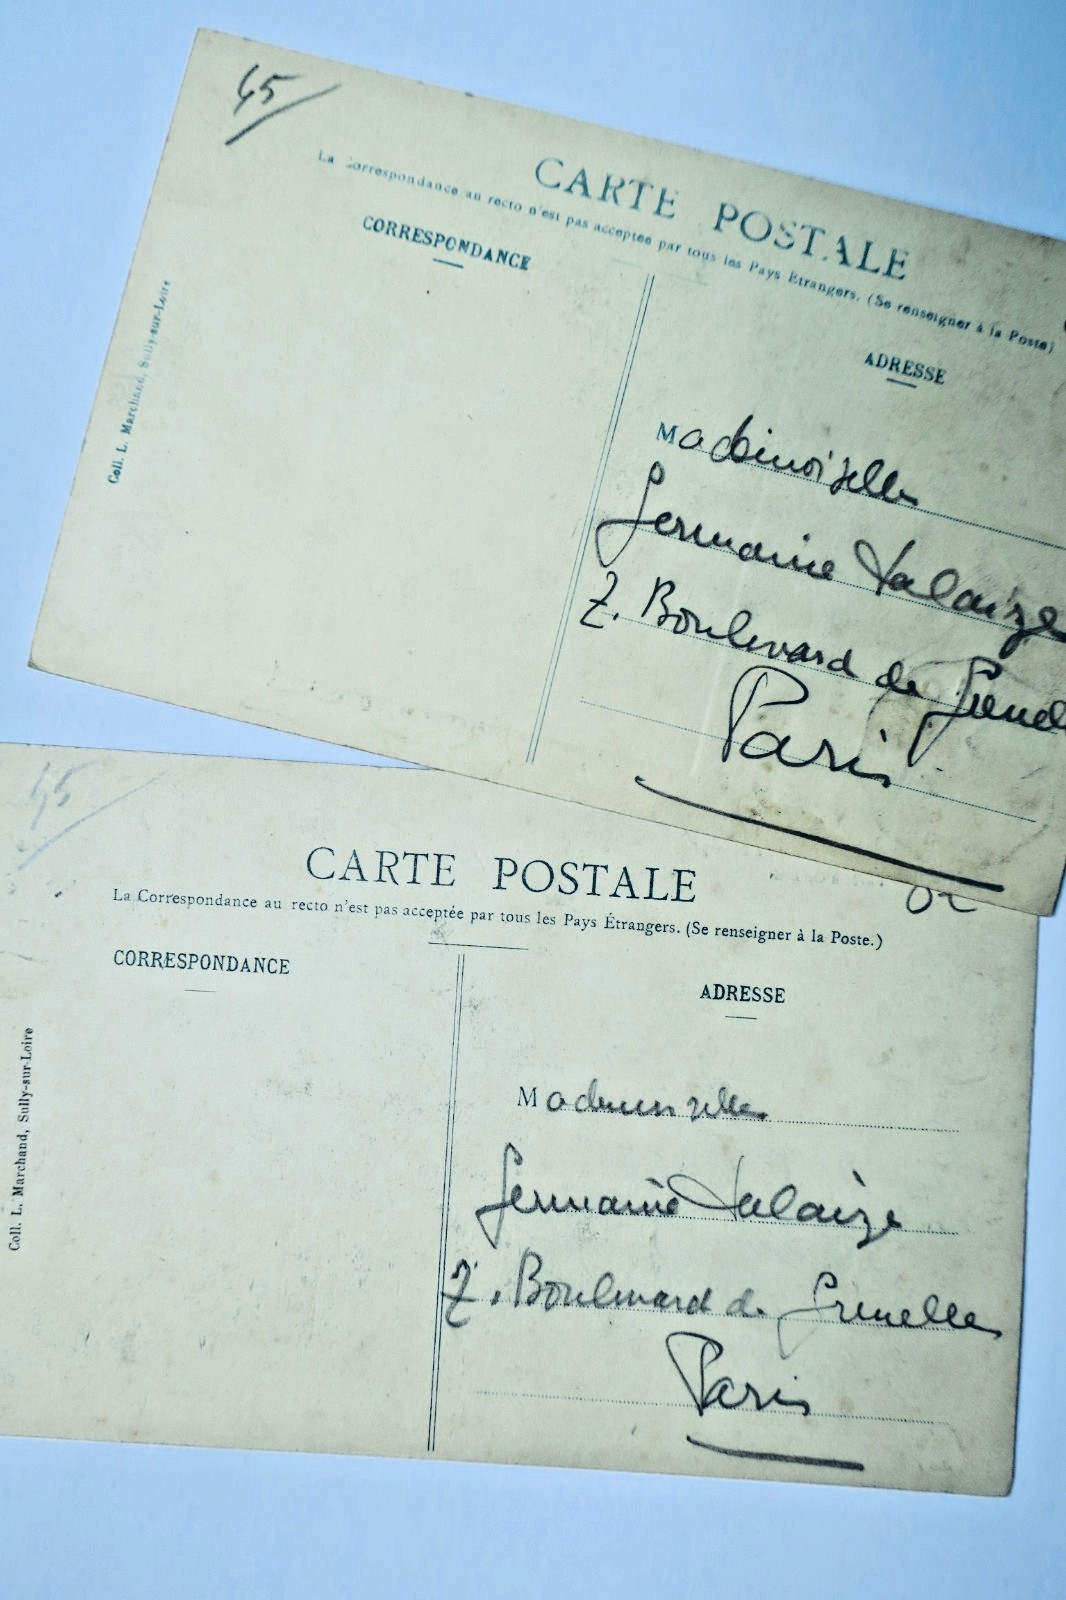 45
CARTE POSTALE
La Correspondance au recto n'est pas acceptée par tous les Pays Étrangers. (Se renseigner à la Poste)
CORRESPONDANCE
ADRESSE
Coll. L. Marchand, Sully-sur-Loire
Mademoiselle
Germaine Dalaize
7. Boulevard de Grenel
Paris
45
CARTE POSTALE
La Correspondance au recto n'est pas acceptée par tous les Pays Étrangers. (Se renseigner à la Poste.)
CORRESPONDANCE
ADRESSE
Coll. L. Marchand, Sully-sur-Loire
Mademoiselle
Germaine Dalaize
7. Boulevard de Grenelle
Paris